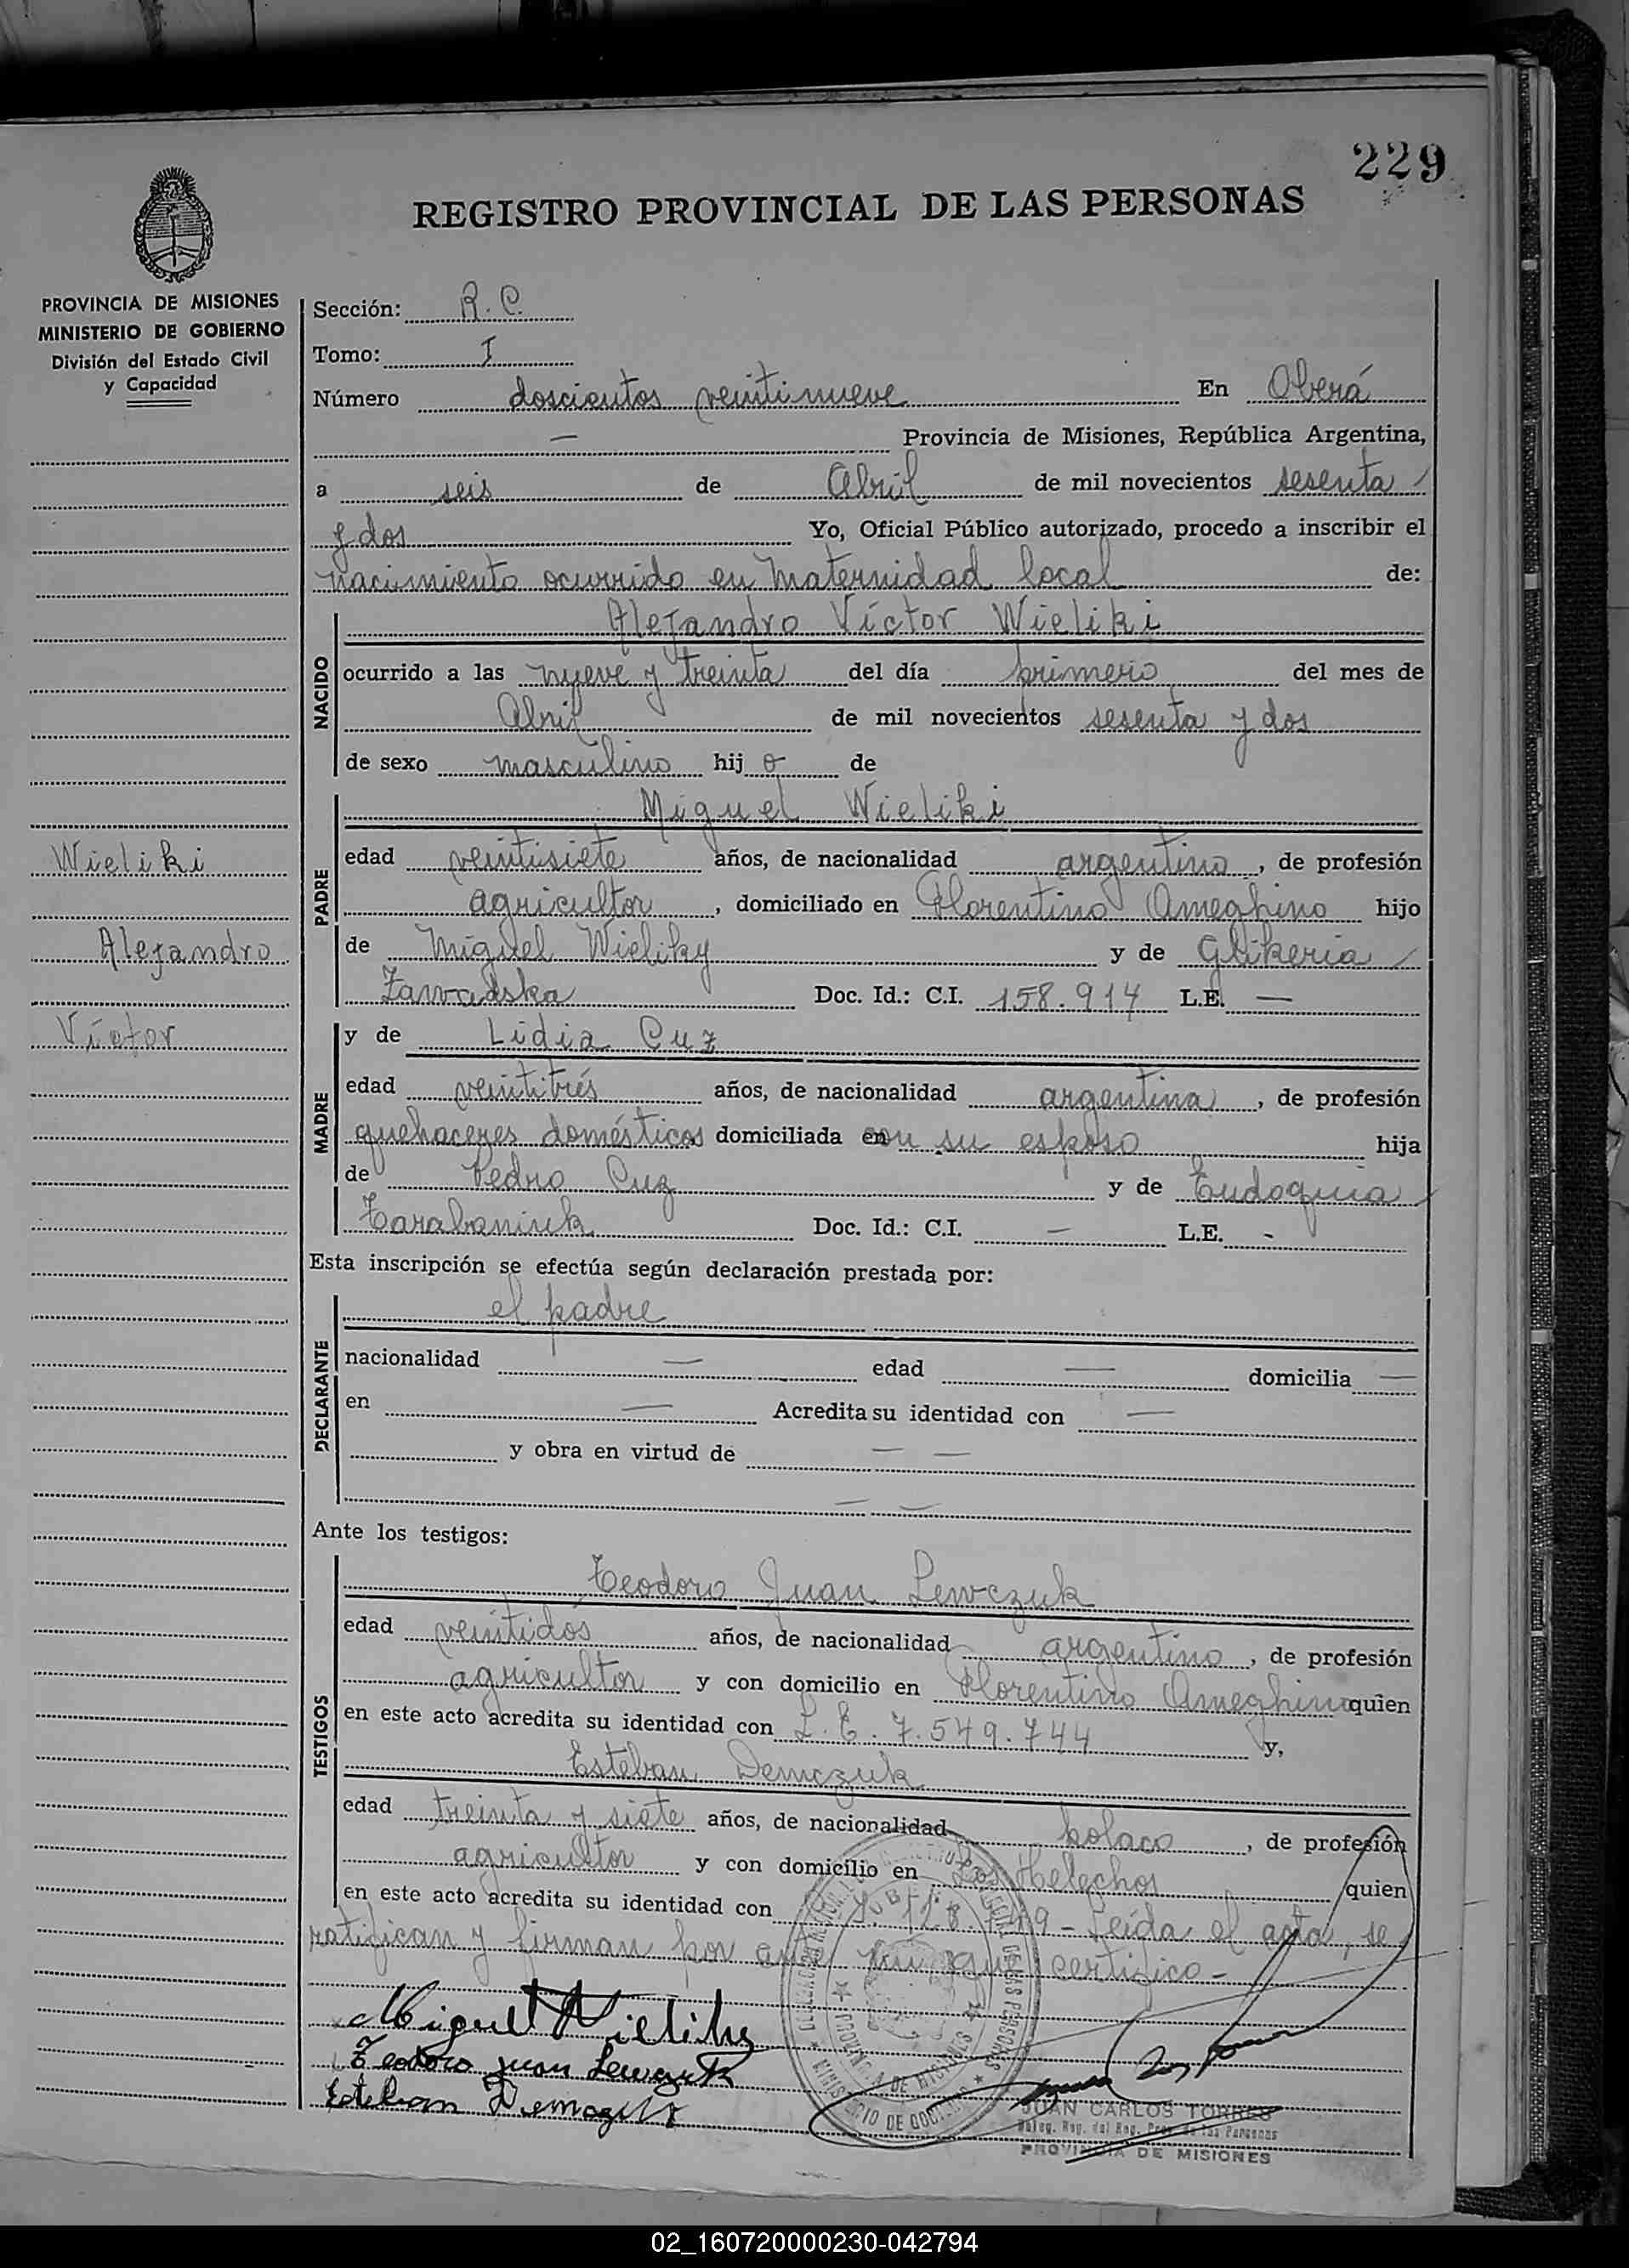 229
REGISTRO PROVINCIAL DE LAS PERSONAS
PROVINCIA DE MISIONES
MINISTERIO DE GOBIERNO
División del Estado Civil
y Capacidad
Wieliki
Alejandro
Víctor
Sección: R. C.
Tomo: I
Número doscientos veintinueve En Oberá
— Provincia de Misiones, República Argentina,
a seis de Abril de mil novecientos sesenta
y dos Yo, Oficial Público autorizado, procedo a inscribir el
nacimiento ocurrido en Maternidad local de:
NACIDO
Alejandro Víctor Wieliki
ocurrido a las nueve y treinta del día primero del mes de
Abril de mil novecientos sesenta y dos
de sexo masculino hij o de
PADRE
Miguel Wieliki
edad veintisiete años, de nacionalidad argentino, de profesión
agricultor, domiciliado en Florentino Ameghino hijo
de Miguel Wieliky y de Glikeria
Zawadska Doc. Id.: C.I. 158.914 L.E. —
MADRE
y de Lidia Cuz
edad veintitrés años, de nacionalidad argentina, de profesión
quehaceres domésticos domiciliada en con su esposo hija
de Pedro Cuz y de Eudoquia
Tarabaniuk Doc. Id.: C.I. — L.E. -
Esta inscripción se efectúa según declaración prestada por:
DECLARANTE
el padre
nacionalidad — edad — domicilia —
en — Acredita su identidad con —
y obra en virtud de — —
— —
Ante los testigos:
TESTIGOS
Teodoro Juan Lewczuk
edad veintidós años, de nacionalidad argentino, de profesión
agricultor y con domicilio en Florentino Ameghino quien
en este acto acredita su identidad con L. E. 7.549.744 y,
Esteban Demczuk
edad treinta y siete años, de nacionalidad polaco, de profesión
agricultor y con domicilio en Los Helechos quien
en este acto acredita su identidad con - Leída el acta, se
ratifican y firman por ante mí que certifico -
Miguel Wieliky
Teodoro Juan Lewczuk
Esteban Demczuk
MINISTERIO DE GOBIERNO
PROVINCIA DE MISIONES
JUAN CARLOS TORRES
Deleg. Reg. del Reg. Prov. de las Personas
PROVINCIA DE MISIONES
02_160720000230-042794